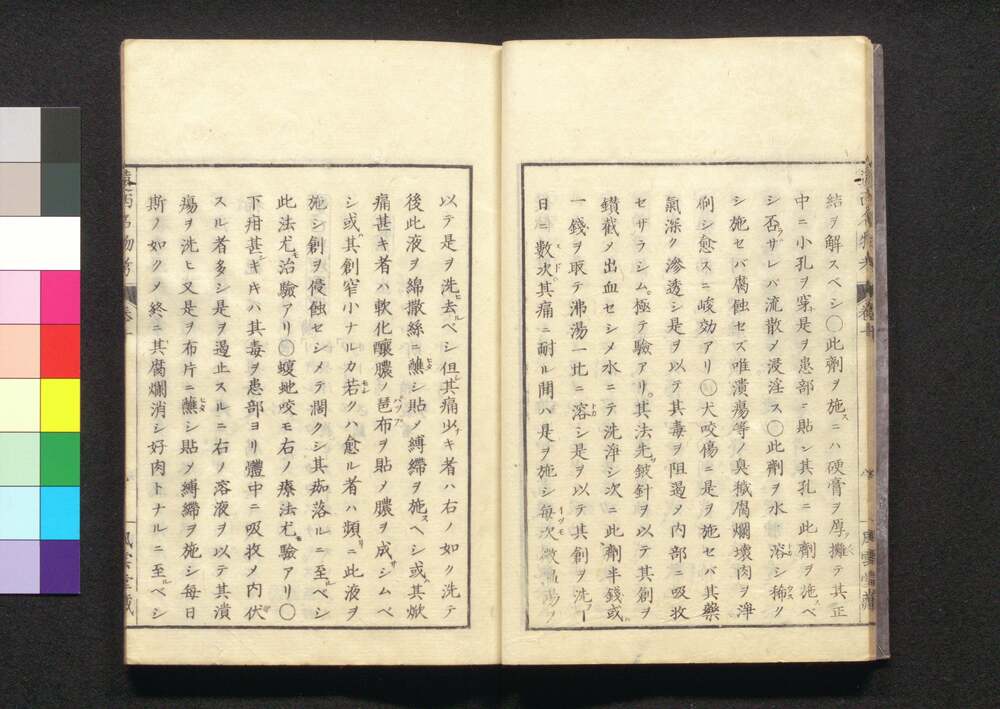 結ヲ解スベシ〇此劑ヲ施スニハ硬膏ヲ厚ク攤テ其正
中ニ小孔ヲ穿チ是ヲ患部ニ貼シ其孔ニ此劑ヲ施スベ
シ否ザレバ流散メ浸淫ス〇此劑ヲ水ニ溶シ稀クメ
シ施セバ腐蝕セズ唯潰瘍等ノ臭穢腐爛壞肉ヲ淨
刷シ愈スニ峻効アリ〇犬咬傷ニ是ヲ施セバ其藥
氣深ク滲透シ是ヲ以テ其毒ヲ阻遏メ内部ニ吸收
セザラシム極テ驗アリ其法先ヅ鈹針ヲ以テ其創ヲ
鑚截メ出血セシメ水ニテ洗淨シ次ニ此劑半錢或ハ
一錢ヲ取テ沸湯一匕ニ溶シ是ヲ以テ其創ヲ洗フ一
日ニ數次其痛ニ耐ル間ハ是ヲ施シ每次微温湯ヲ
以テ是ヲ洗去ルベシ但其痛少キ者ハ右ノ如ク洗テ
後此液ヲ綿撒絲ニ蘸シ貼メ縛繃ヲ施スヘシ或ハ其焮
痛甚キ者ハ軟化釀膿ノ琶布ヲ貼メ膿ヲ成サシムベ
シ或ハ其創窄小ナルカ若クハ愈ル者ハ頻リニ此液ヲ
施シ創ヲ侵蝕セシメテ濶クシ其痂落ルニ至ルベシ
此法尤モ治驗アリ〇蝮虵咬モ右ノ療法尤モ驗アリ〇
下疳甚シキハ其毒ヲ患部ヨリ體中ニ吸收メ内伏
スル者多シ是ヲ遏止スルニ右ノ溶液ヲ以テ其潰
瘍ヲ洗ヒ又是ヲ布片ニ蘸シ貼メ縛繃ヲ施シ每日
斯ノ如クメ終ニ其腐爛消シ好肉トナルニ至ルベシ